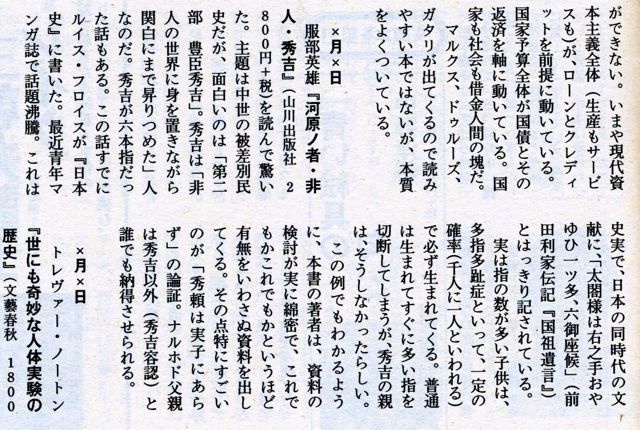 ができない。いまや現代資
本主義全体（生産もサービ
スも）が、ローンとクレディ
ットを前提に動いている。
国家予算全体が国債とその
返済を軸に動いている。国
家も社会も借金人間の塊だ。
マルクス、ドゥルーズ、
ガタリが出てくるので読み
やすい本ではないが、本質
をよくついている。
×月×日
服部英雄『河原ノ者・非
人・秀吉』（山川出版社　2
800円＋税）を読んで驚い
た。主題は中世の被差別民
史だが、面白いのは「第二
部　豊臣秀吉」。秀吉は「非
人の世界に身を置きながら
関白にまで昇りつめた」人
なのだ。秀吉が六本指だっ
た話もある。この話すでに
ルイス・フロイスが『日本
史』に書いた。最近青年マ
ンガ誌で話題沸騰。これは
史実で、日本の同時代の文
献に、「太閤様は右之手おや
ゆひ一ツ多、六御座候」（前
田利家伝記『国祖遺言』）
とはっきり記されている。
実は指の数が多い子供は、
多指多趾症といって、一定の
確率（千人に一人といわれる）
で必ず生まれてくる。普通
は生まれてすぐに多い指を
切断してしまうが、秀吉の親
は、そうしなかったらしい。
この例でもわかるよう
に、本書の著者は、資料の
検討が実に綿密で、これで
もかこれでもかというほど
有無をいわさぬ資料を出し
てくる。その点特にすごい
のが「秀頼は実子にあら
ず」の論証。ナルホド父親
は秀吉以外（秀吉容認）と
誰でも納得させられる。
×月×日
トレヴァー・ノートン
『世にも奇妙な人体実験の
歴史』（文藝春秋　1800